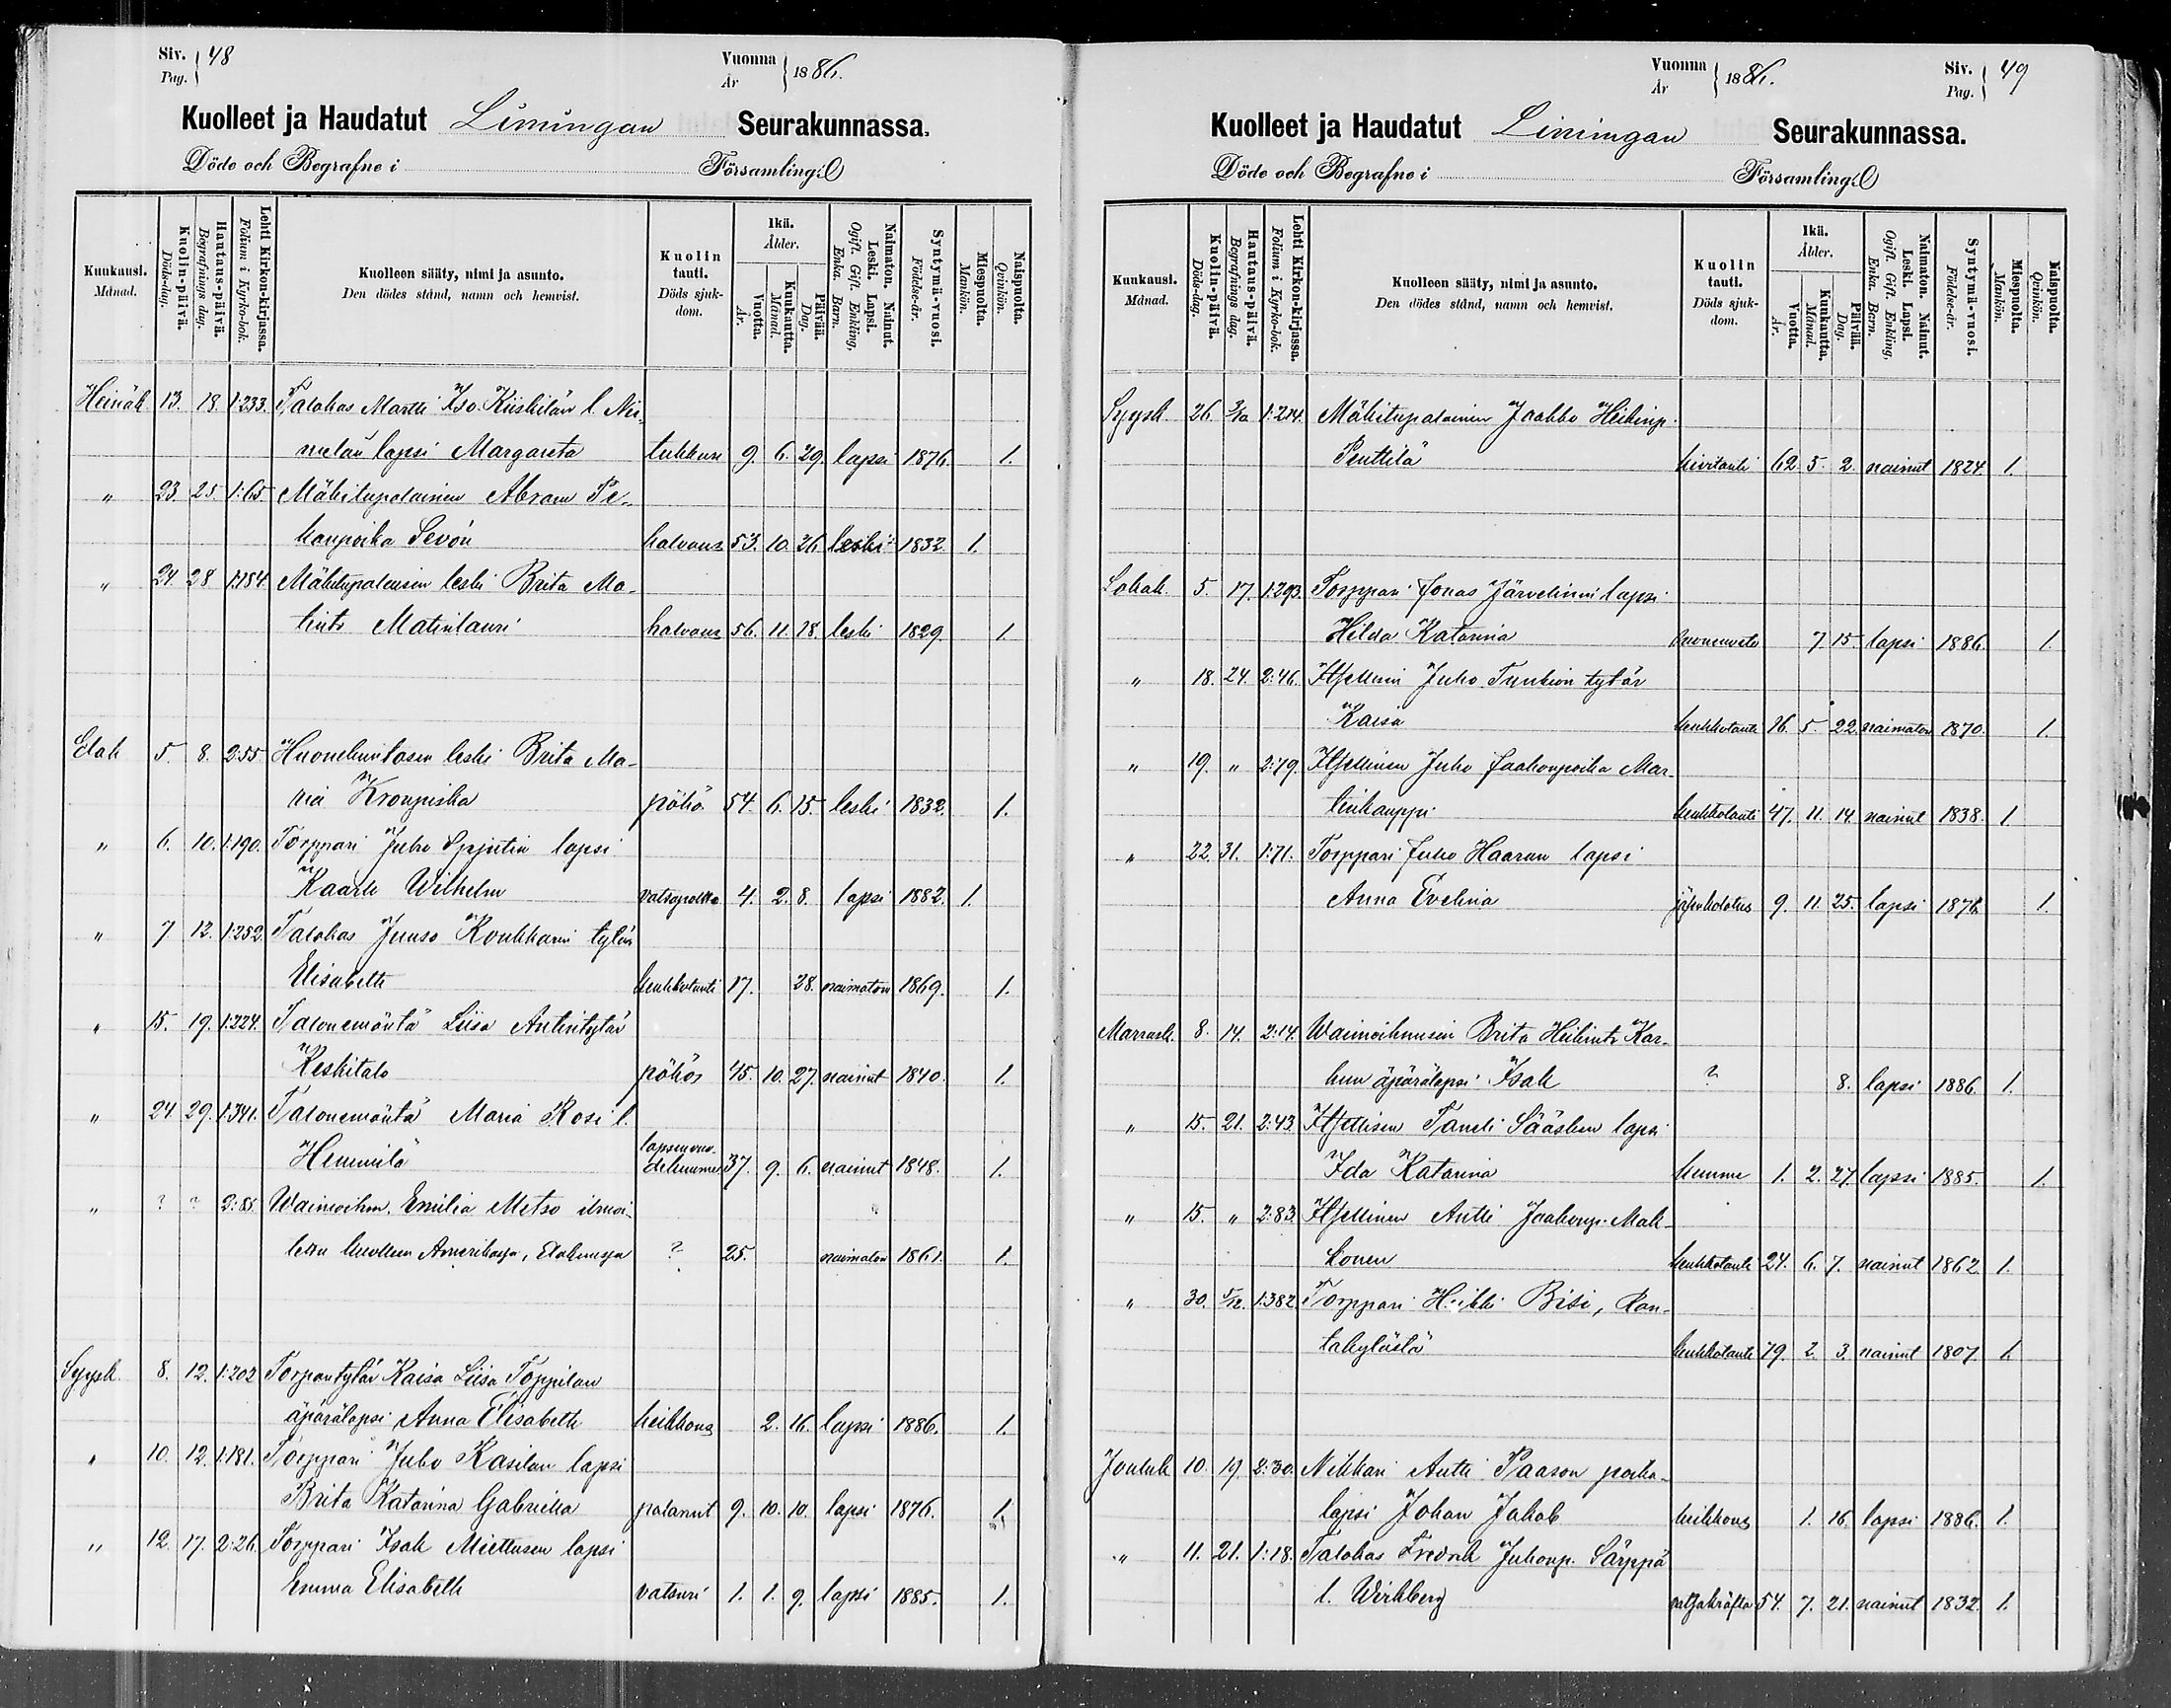 Siv. 48
Pag.
Vuonna 1886.
År
Kuolleet ja Haudatut Limingan Seurakunnassa.
Döde och Begrafne i Församling.
Kuukausi. Månad.
Kuolin-päivä. Döds-dag.
Hautaus-päivä. Begrafnings dag.
Lehti Kirkon-kirjassa. Folium i Kyrko-bok.
Kuolleen sääty, nimi ja asunto.
Den dödes stånd, namn och hemvist.
Kuolin tauti. Döds sjuk-dom.
Ikä. Ålder.
Vuotta. År.
Kuukautta. Månad.
Päivää. Dag.
Naimaton. Nainut. Leski. Lapsi.
Ogift. Gift. Enkling, Enka. Barn.
Syntymä-vuosi. Födelse-år.
Miespuolta. Mankön.
Naispuolta. Qvinkön.
Heinäk. 13. 18. 1:233. Talokas Martti Iso-Kiiskilän l. Nii-
melän lapsi Margareta tuhkuri 9. 6. 29. lapsi 1876. 1.
" 23. 25. 1:65 Mäkitupalainen Abram Pe-
kanpoika Sevón halvaus 53. 10. 26 leski 1832. 1.
" 24. 28 1:184. Mäkitupalaisen leski Brita Ma-
tints Matinlauri halvaus 56. 11. 28. leski 1829. 1
Elok 5. 8. 2:55 Huonekuntasen leski Brita Ma-
ria Kronqvist pöhö 54. 6. 15. leski 1832. 1.
" 6. 10. 1:190. Torppari Juho lapsi
Kaarle Wilhelm 4. 2. 8. lapsi 1882. 1.
" 7 12. 1:252. Talokas Juuso Koukkarin tytär
Elisabeth keuhkotauti 17. 28. naimaton 1869. 1.
" 15. 19. 1:224. Talonemäntä Liisa Antintytär
Keskitalo pöhös 45. 10. 27. nainut 1840. 1.
" 24. 29. 1:341. Talonemäntä Maria Kosi l.
Hemmilä lapsenvuo-
dekuume 37. 9. 6. nainut 1848. 1.
" ? ? 2:85. Waimoihm. Emilia Metso ilmoi-
tettu kuolleen Amerikassa, Elokuussa ? 25. naimaton 1861. 1.
Syysk. 8. 12. 1:202 Torpantytär Kaisa Liisa Toppilan
äpärälapsi Anna Elisabeth heikkous 2. 16. lapsi 1886. 1.
" 10. 12. 1:181. Torppari Juho Kasilan lapsi
Brita Katarina Gabriella palanut 9. 10. 10. lapsi 1876. 1.
" 12. 17. 2:26. Torppari Isak Miettusen lapsi
Emma Elisabeth vatsuri 1. 1. 9. lapsi 1885. 1.
Vuonna 1886.
År
Siv. 49
Pag.
Kuolleet ja Haudatut Limingan Seurakunnassa.
Döde och Begrafne i Församling.
Kuukausi. Månad.
Kuolin-päivä. Döds-dag.
Hautaus-päivä. Begrafnings dag.
Lehti Kirkon-kirjassa. Folium i Kyrko-bok.
Kuolleen sääty, nimi ja asunto.
Den dödes stånd, namn och hemvist.
Kuolin tauti. Döds sjuk-dom.
Ikä. Ålder.
Vuotta. År.
Kuukautta. Månad.
Päivää. Dag.
Naimaton. Nainut. Leski. Lapsi.
Ogift. Gift. Enkling, Enka. Barn.
Syntymä-vuosi. Födelse-år.
Miespuolta. Mankön.
Naispuolta. Qvinkön.
Syysk. 26. 3/10 1:214. Mäkitupalainen Jaakko Heikinp.
Penttilä kivitauti 62. 5. 2. nainut 1824. 1.
Lokak. 5. 17. 1:293. Torppari Jonas Järvelinin lapsi
Hilda Katarina 7. 15. lapsi 1886. 1.
" 18. 24. 2:46. Itsellinen Juho Tunkion tytär
Kaisa keuhkotauti 16. 5. 22. naimaton 1870. 1.
" 19. " 2:79. Itsellinen Juho Jaakonpoika Mar-
tinkauppi keuhkotauti 47. 11. 14. nainut 1838. 1.
" 22. 31. 1:71. Torppari Juho Haaran lapsi
Anna Evelina 9. 11. 25. lapsi 1876. 1.
Marrask. 8. 14. 2:14. Waimoihmisen Brita Heikints Kar-
hun äpärälapsi Isak ? 8. lapsi 1886. 1.
" 15. 21. 2:43. Itsellisen Taneli Sääsken lapsi
Ida Katarina kuume 1. 2. 27. lapsi 1885. 1.
" 15. " 2:83. Itsellinen Antti Jaakonp. Mak-
konen keuhkotauti 24. 6. 7. nainut 1862. 1.
" 30. 5/12. 1:382. Torppari Heikki Bisi, Ran-
takylästä keuhkotauti 79. 2. 3. nainut 1807. 1.
Jouluk 10. 19 2:30. Nikkari Antti Paason poika-
lapsi Johan Jakob heikkous 1. 16. lapsi 1886. 1.
" 11. 21. 1:18. Talokas Fredrik Juhonp. Särppä
l. Wirkberg 54. 7. 21. nainut 1832. 1.